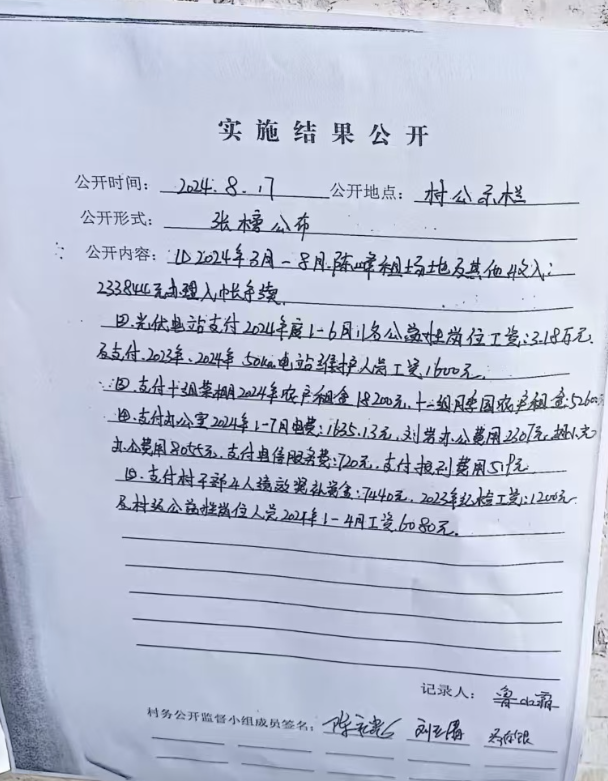 实施结果公开
公开时间：2024.8.17 公开地点：村公示栏
公开形式：张榜公布
公开内容：① 2024年3月－8月.陈峰租场地及其他收入：
233844元办理入帐手续.
②.光伏电站支付2024年度1－6月11名公益性岗位工资:3.18万元.
及支付.2023年、2024年50kw.电站维护人员工资1600元.
③.支付十三组菜棚2024年农户租金18200元.十一组月季园农户租金:5260
④.支付办公室2024年1－7月电费:1635.13元,刘岩办公费用2307元.
办公费用8055元,支付电信服务费:720元.支付换副费用519元
⑤.支付村干部4人绩效奖补资金:7440元,2023年纪检工资:1200元
及村级公益性岗位人员2024年1－4月工资6080元.
记录人：鲁
村务公开监督小组成员签名：陈 刘